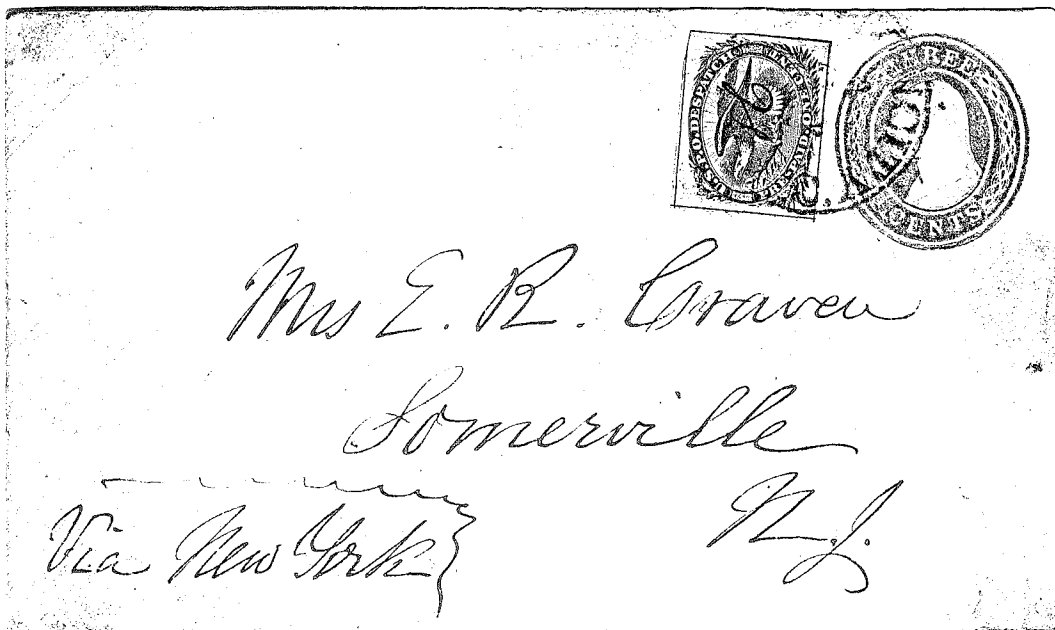 U.S.P.O. DESPATCH
PRE-PAID ONE CENT
THREE
CENTS
Mrs E. R. Craven
Somerville
N.J.
Via New York